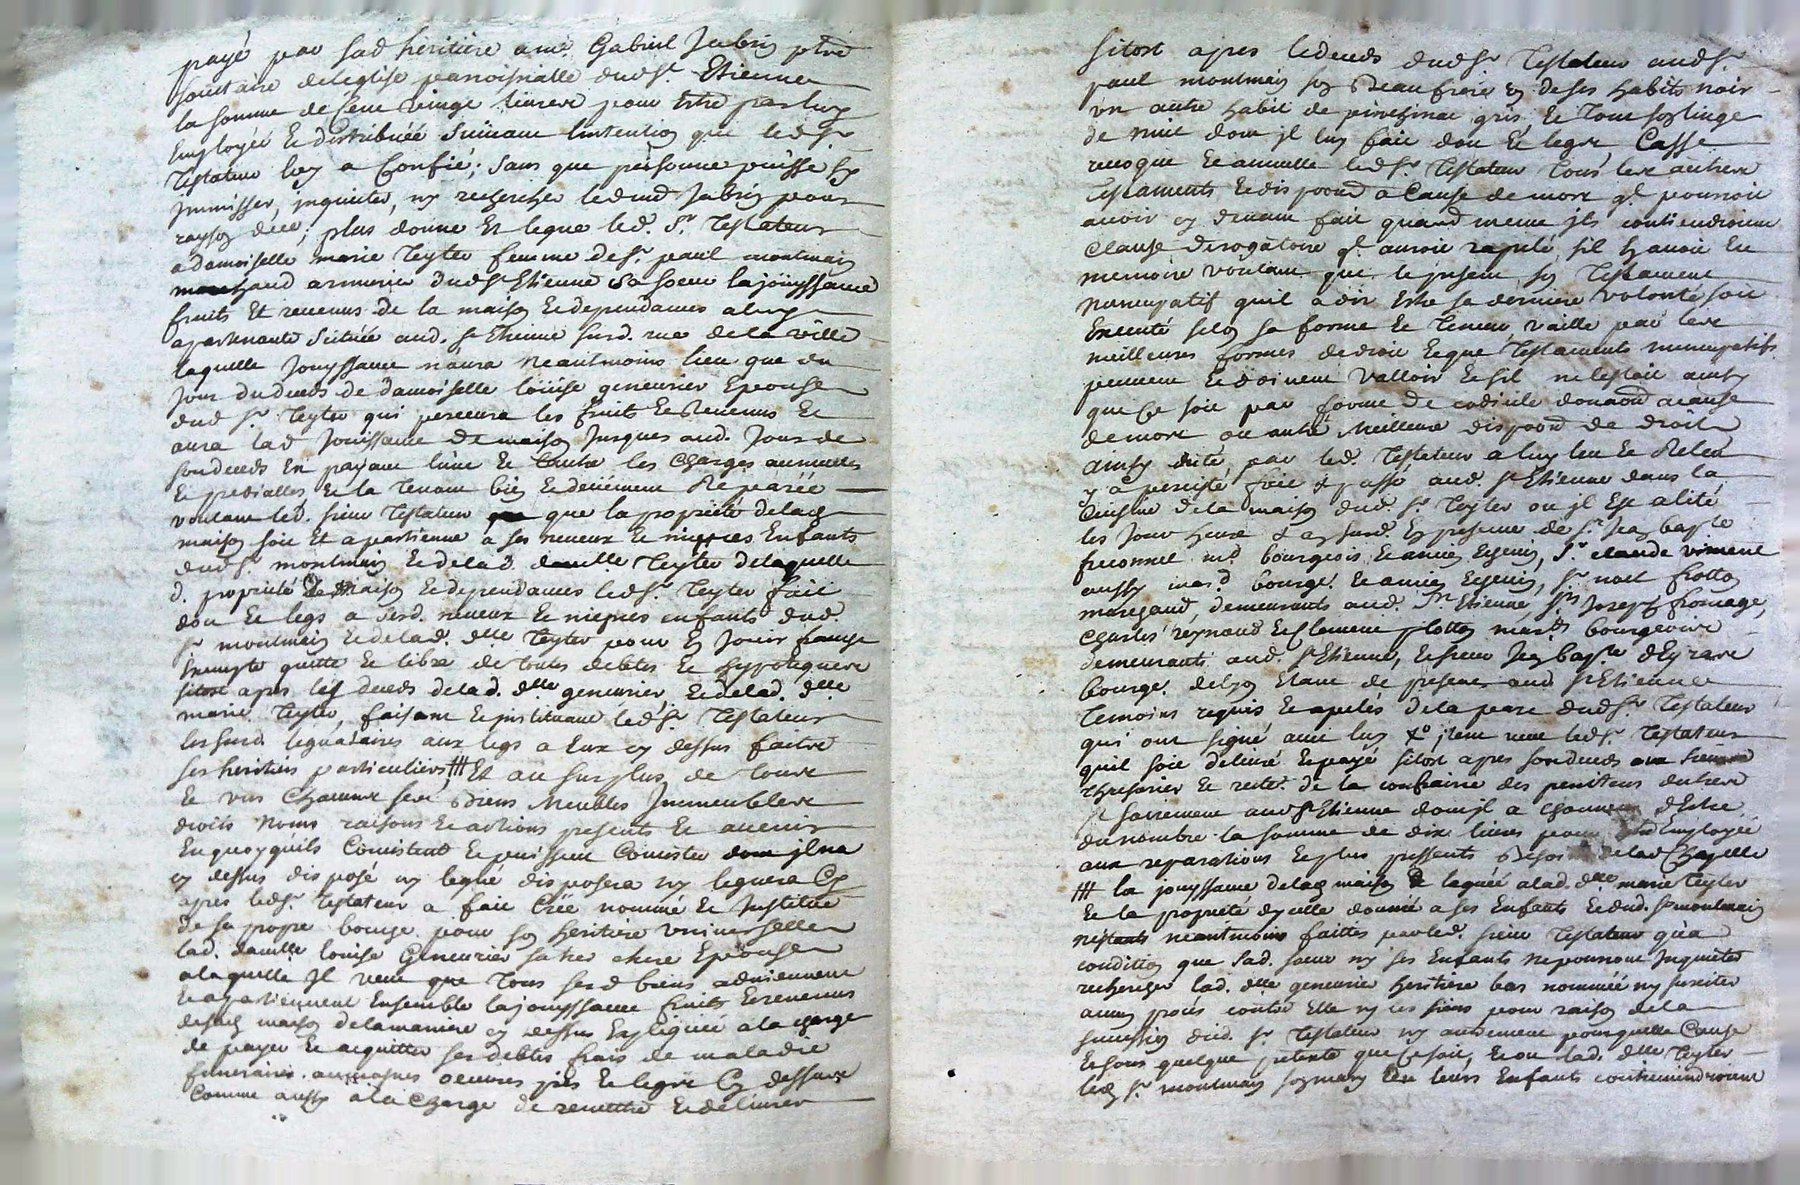 payé par sad heritiere a mre Gabriel Jabrin ptre
societaire de leglise parroissialle dud st Etienne
la somme de Cent vingt livres pour Estre par luy
Employée Et distribuée suivant lintention que led sr
Testateur luy a Confié; sans que personne puisse sy
Jmmisser, jnquieter, ny rechercher led md Jabrin pour
rayson dece; plus donne Et legue led. Sr. Testateur
a damoiselle marie Teyter femme de sr. paul montmain
marchand armurier dud st Etienne sa soeur la jouyssance
fruits Et revenus de la maison Et dependances a luy
apartenante scituée aud. st Etienne susd. rue de la ville
laquelle Jouyssance n'aura neantmoins lieu que du
Jour du deceds de damoiselle loüise geneurier Epouse
dud sr. Teyter qui percevra les fruits Et Revenus Et
aura lad Jouissance de maison Jusques aud. Jour de
son deceds En payant lune Et lautre les Charges annuelles
Et predialles Et la Tenant bien Et deüement Reparée
voulant led. sieur Testateur que la proprieté delad
maison soit Et apartienne a ses neveux Et niepces Enfants
dud sr. montmain Et delad. damlle Teyter delaquelle
d. proprieté de maison Et dependances led sr. Teyter fait
don Et legs a sesd. neveux Et niepces enfants dud.
sr montmain Et delad. dlle Teyter pour En Jouir franche
Exempte quitte Et libre de toutes debtes Et hypoteques
sitost apres les deceds delad. dlle geneurier, Et delad. dlle
marie Teyter, faisant Et jnstituant led sr. Testateur
les susd. legataires aux legs a Eux cy dessus faittes
ses heritiers particuliers ǂǂǂ Et au surplus de tous
Et uns Chacuns ses biens Meubles Jmmeubles
droits Noms raisons Et actions presents Et avenir
En quoy quils Consistent Et puissent Consister dont jl na
cy dessus disposé ny legué disposera ny leguera Cy
apres led sr. testateur a fait Créé nommé Et Jnstitué
de sa propre bouche pour son heritiere universelle
lad. damlle louise Geneurier sa tres chere Epouse
a laquelle Jl veut que tous sesd biens adviennent
Et apartiennent Ensemble la jouyssance fruits Et revenus
desad maison de la maniere cy dessus Expliquée a la charge
de payer Et acquitter ses debtes frais de maladie
funeraires. aumosnes oeuvres pies Et legs Cy dessus
Comme aussy a la Charge de remettre Et delivrer
sitost apres le deceds dud sr Testateur aud sr.
paul montmain son Beaufrere un de ses habits noir
un autre habit de pinchinat gris Et tout son linge
de nuit dont jl luy fait don Et legs Casse
revoque Et annulle led sr. Testateur Tous les autres
Testaments Et dispoons a Cause de mort ql. pourroit
avoir cy devant fait quand meme jls contiendroient
Clause derogatoire ql. auroit rapelé sil En avoit Eu
memoire voulant que le present son Testament
Nuncupatif quil a dit Estre sa derniere volonté soit
Executé selon sa forme Et teneur vaille par les
meilleures formes de droit Et que Testaments nuncupatifs
peuvent Et doivent Valloir Et sil ne lestoit ainsy
que Ce soit par forme de codicile donaoon a cause
de mort ou autre Meilleure dispoon de droit
ainsy dicté par led. Testateur a luy leu Et Releu
y a persisté fait & passé aud. st Etienne dans la
Cuisine de la maison dud. sr. Teyter ou jl Est alité
les Jour heure & an susd. En presence de sr. Jean bapte
freconnet md. bourgeois Et ancien Echevin, sr claude viment
aussy mard. bourge. Et ancien Echevin, sr. noel frotton
marchand, demeurants aud. St Etienne, srs Joseph fromage,
Charles reynaud Et Clement plotton mards. bourgeois
demeurants aud. st Etienne, Et sieur Jean bapte. deyrare
bourge. de lyon Etant de present aud st Etienne
Temoins requis Et apelés dela part dud sr. Testateur
qui ont signé avec luy xo jtem veut led sr. Testateur
quil soit delivré Et payé sitost apres son deceds aux sieurs
thresorier Et recte. de la confrairie des penitens du tres
st sacrement aud st Etienne dont jl a lhonneur dEstre
du nombre la somme de dix livres pour Estre Employée
aux reparations Et plus pressents Besoins delad Chapelle
ǂǂǂ la jouyssance delad maison leguée a lad. dlle marie Teyter
Et la proprieté dycelle donnée a ses Enfants Et dud. sr montmain
nestants neantmoins faittes par led. sieur Testateur qu'a
condition que sad. soeur ny ses Enfants ne pourront Jnquieter
rechercher lad. dlle geneurier heritiere bas nommée ny susciter
aucun procés contre Elle ny les siens pour raison dela
succession dud. sr. Testateur ny autrement pour quelle Cause
Et sous quelque pretexte que Ce soit, Et ou lad. dlle Teyter
led sr. montmain son mary Ou leurs Enfants contreviendroient